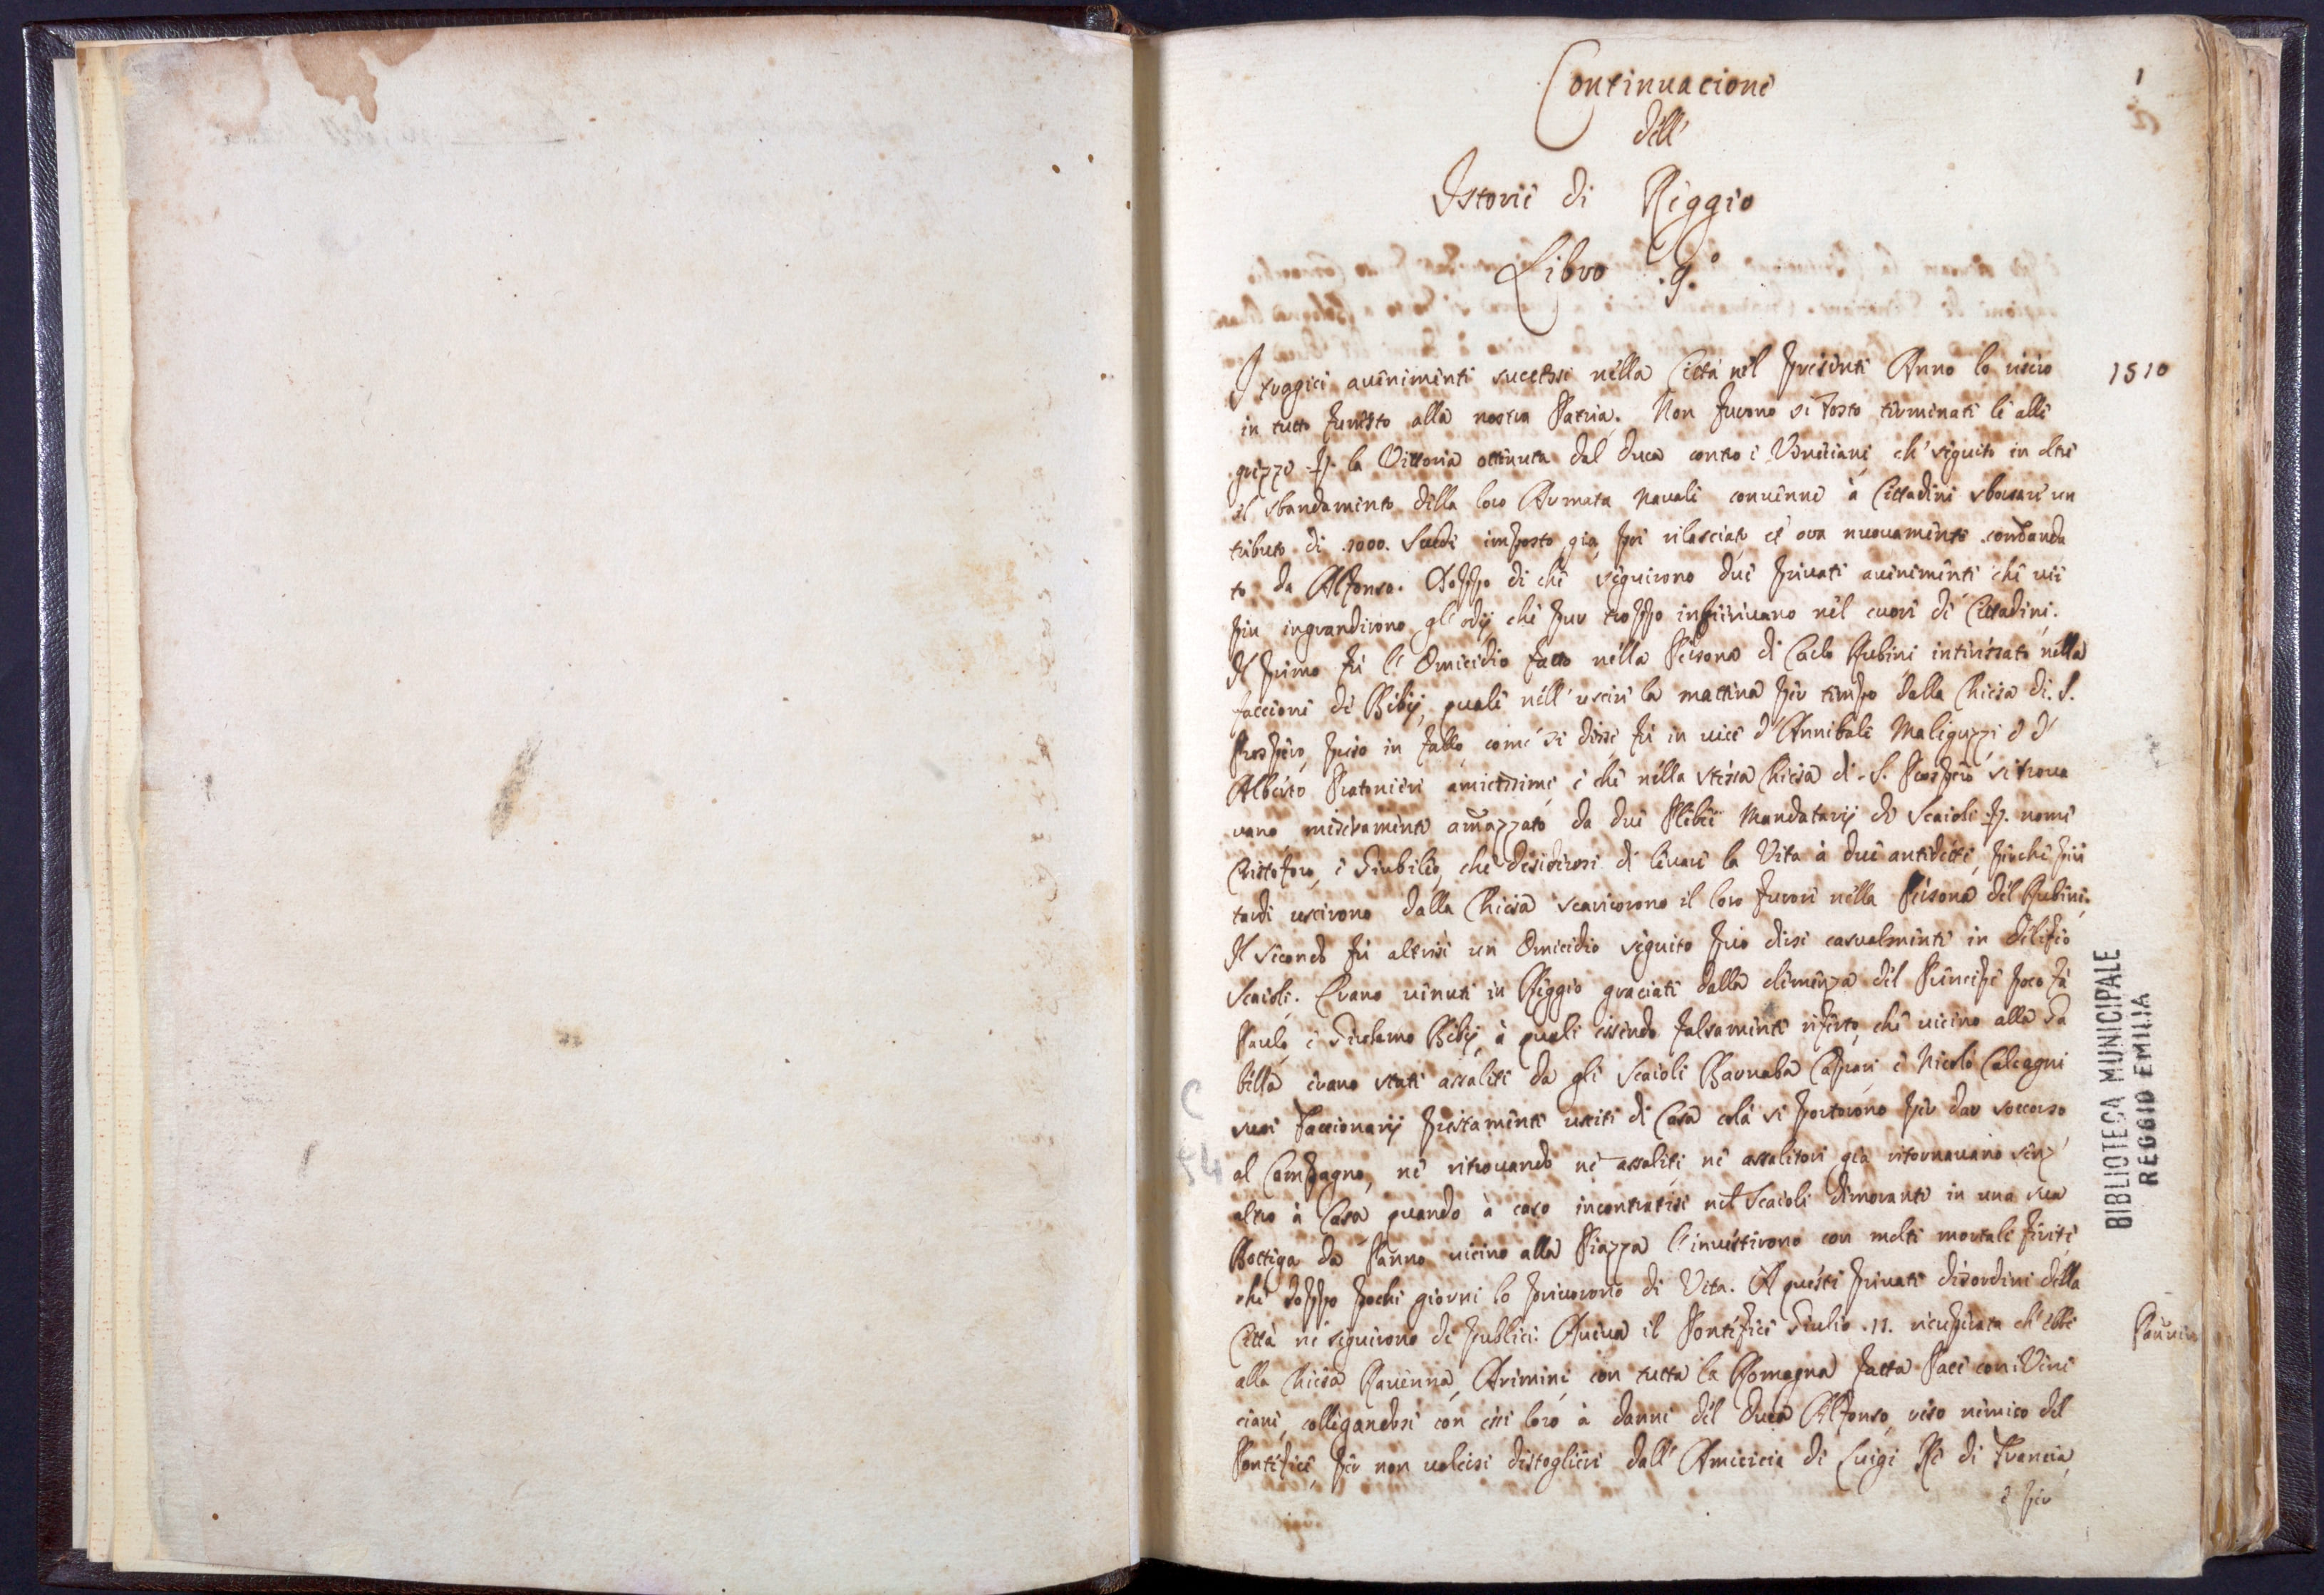 Continuacione
dell'
Istorie di Reggio
Libro .9.°
1
1510
I tragici avenimenti successi nella Città nel presente Anno lo resero
in tutto funesto alla nostra Patria. Non furono si tosto terminate le alle
grezze p. la Vittoria ottenuta dal Duca contro i Veneciani, ch' seguito in oltre
il sbandamento della loro Armata Navale convenne à Cittadini sborsare un
tributo di .1000. Scudi imposto già poi rilasciato, et ora nuovamente comanda
to da Alfonso. Doppo di che seguirono due privati avenimenti che vie
piu ingrandirono gl'odij che pur troppo infierivano nel cuore di Cittadini.
Il primo fù l'Omicidio fatto nella Persona di Carlo Rubini interessato nella
faccione de Bebij, quale nell'uscire la mattina per tempo dalla Chiesa di .S.
Prospero, preso in fallo, come si disse fù in vece d'Annibale Maleguzzi e d'
Alberto Pratonieri amicissimi e che nella stessa Chiesa di .S. Prospero si trova
vano, miseramente amazzato da due Plebei Mandatarij de Scaioli p. nome
Cristoforo, e Giubileo, che desiderosi di levare la Vita à due antidetti, perche più
tardi uscirono dalla Chiesa scaricorono il loro furore nella Persona del Rubini.
Il secondo fù altresi un Omicidio seguito può dirsi casualmente in
Scaioli. Erano venuti in Reggio graciati dalla clemenza del Principe poco fà
Paulo, e Girolamo Bebij, à quali essendo falsamente riferto, che vicino alla Ga
bella erano stati assaliti da gli Scaioli Barnaba Caprari e Nicolò Calcagni
suoi Faccionarij prestamente usciti di Casa colà si portorono per dar soccorso
al Compagno, ne ritrovando ne assaliti, ne assalitori già ritornavano senz'
altro à Casa quando à caso incontratisi nel Scaioli dimorante in una sua
Bottega da Panno vicino alla Piazza l'investirono con molte mortali ferite,
che doppo pochi giorni lo privorono di Vita. A questi privati disordini della
Città ne seguirono de publici: Aveva il Pontefice Giulio .II. ricuperata ch'ebbe
alla Chiesa Ravenna, Arimini con tutta la Romagna fatta Pace coni Vene
ciani, collegandosi con essi loro à danni del Duca Alfonso, reso nemico del
Pontefice, per non volersi distogliere dall'Amicicia di Luigi Rè di Francia,
e per
BIBLIOTECA MUNICIPALE
REGGIO EMILIA